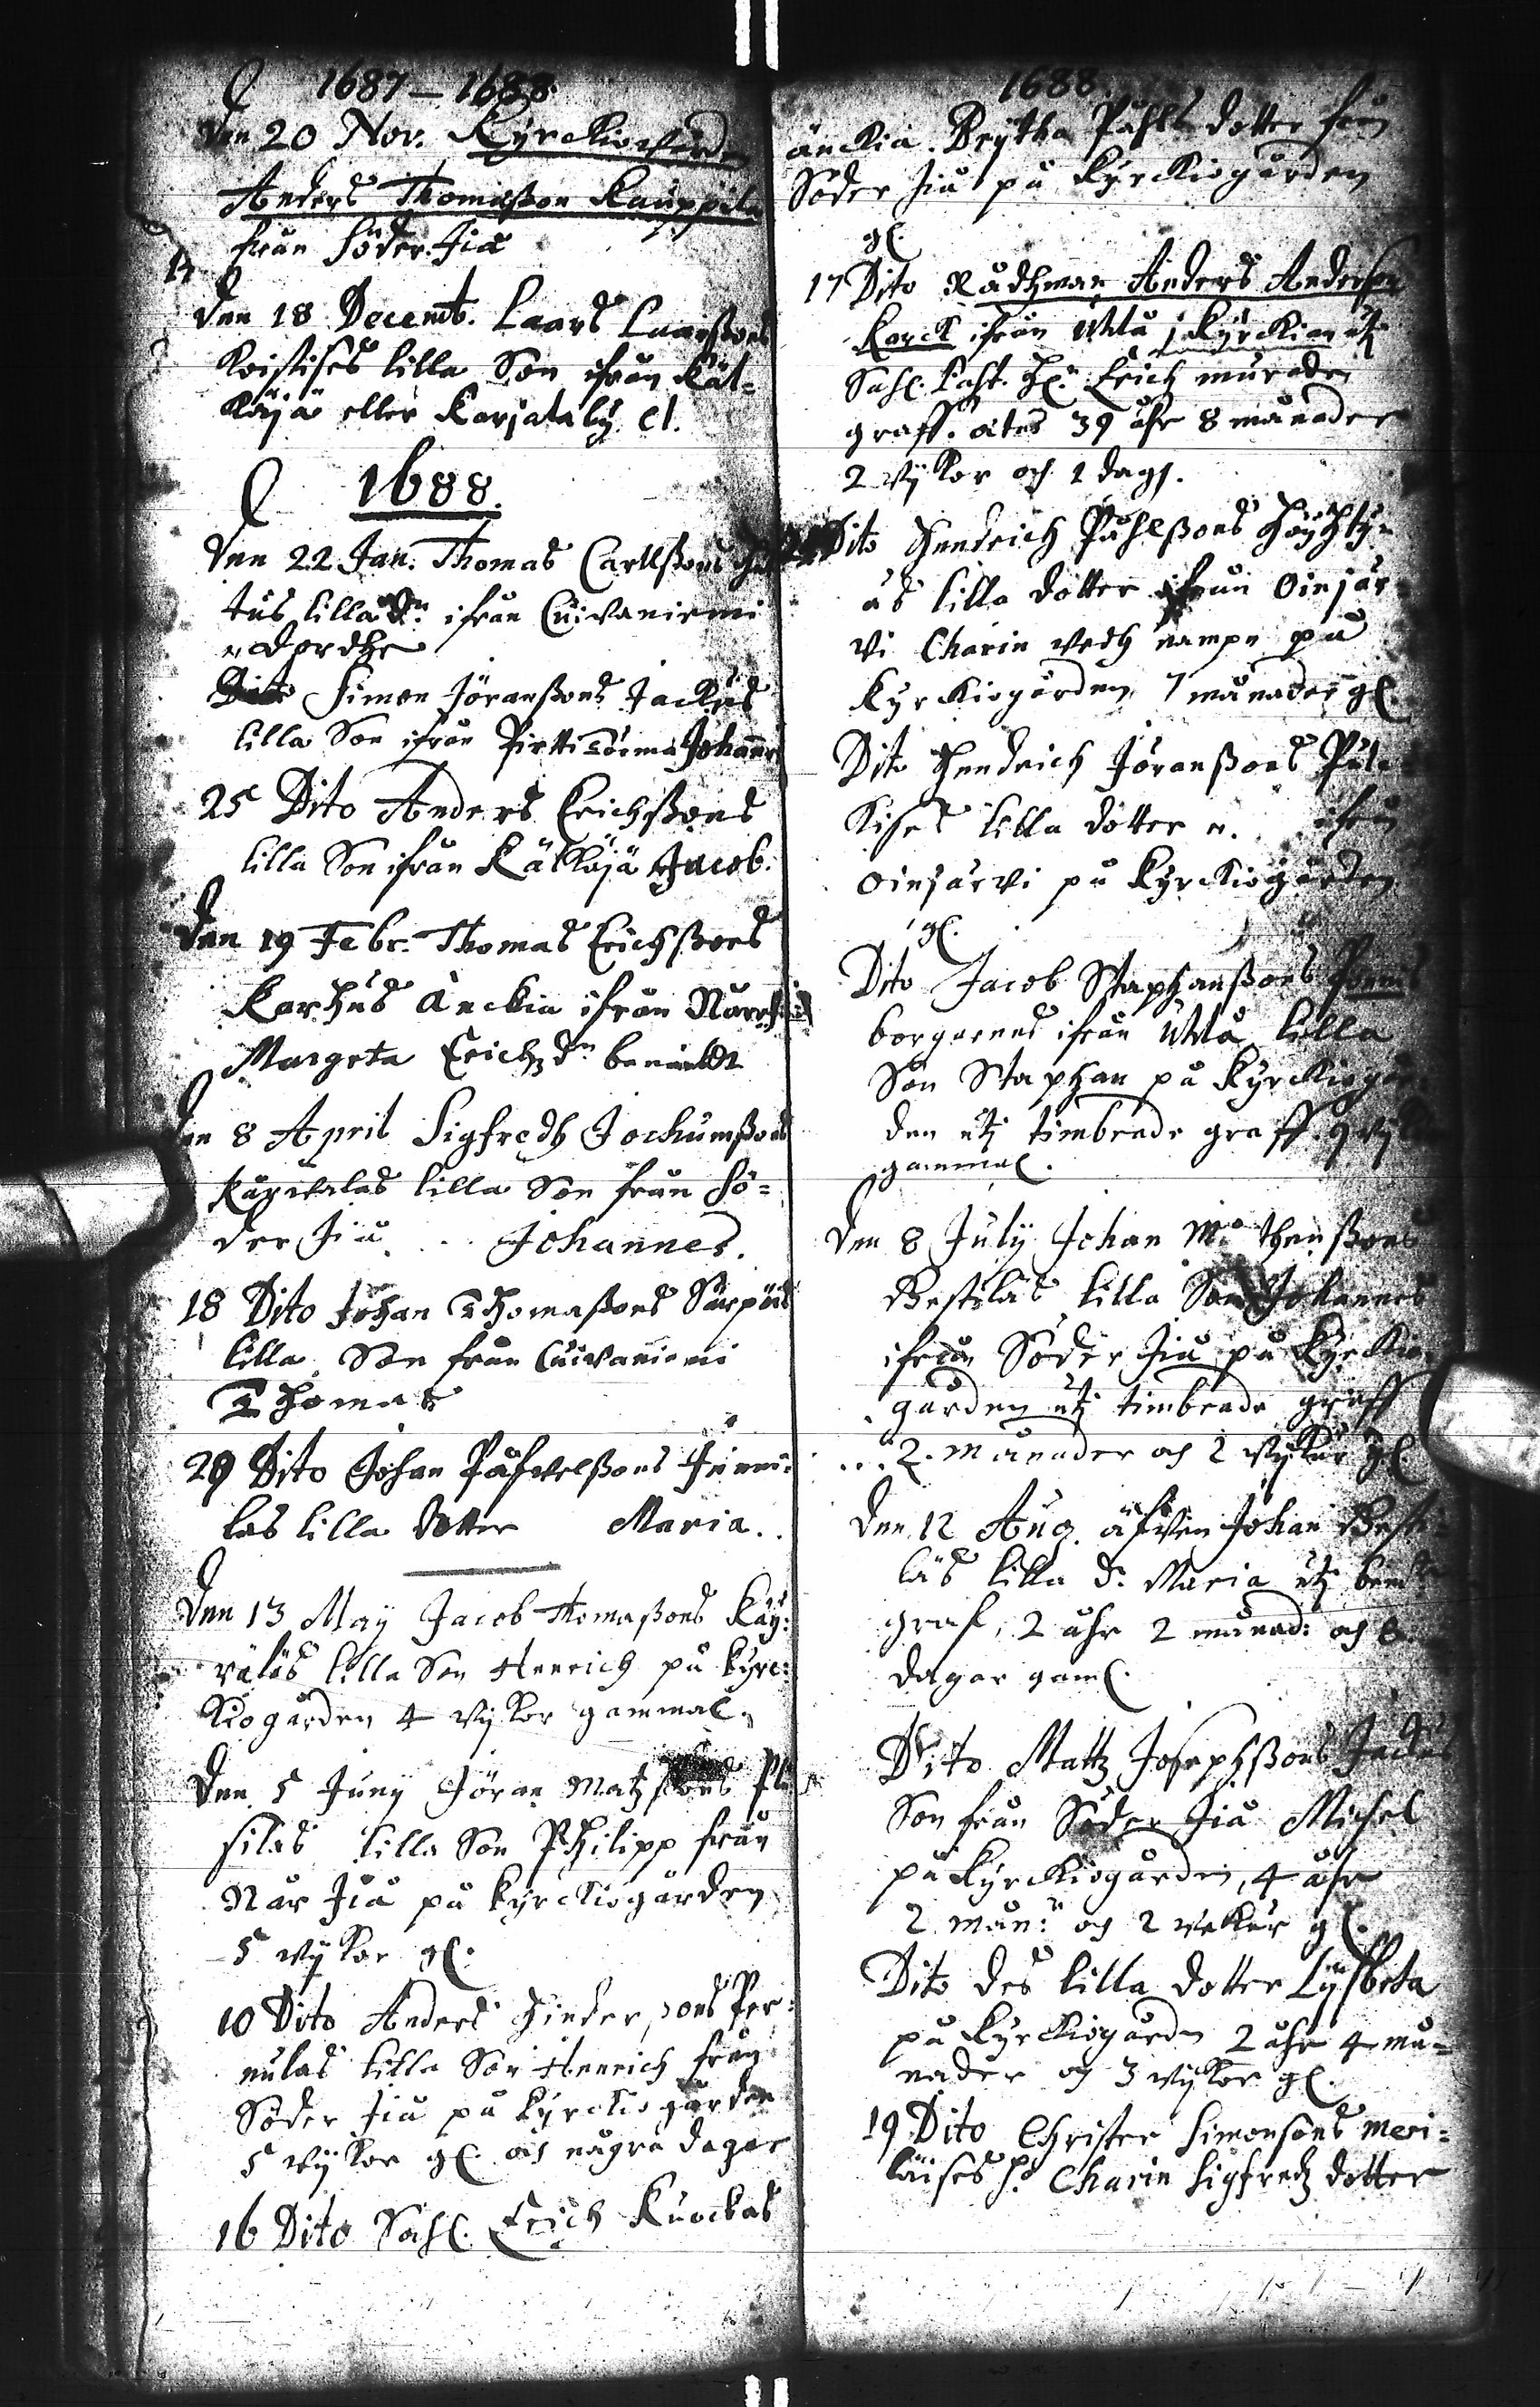 1687–1688
Den 20 Nov. Kyrckiowärden
Anders Thomasson Kauppila
från Söder Jiå
Den 18 Decemb. Laars Laarssons
Koistises lilla Son ifrån Kät-
käjä eller Karjalaby. et.
1688.
Den 22 Jan. Thomas Carllssons
tus lilla Dn. ifrån Cuivaniemi
Dordhe
Dito Simon Jöranssons Jackus
lilla Son ifrån Pirttitörmä Johannes
25 Dito Anders Erichssons
lilla Son ifrån Kätkäjä Jacob.
Den 19 Febr. Thomas Erichssons
Karhus änckia ifrån
Margeta Erichzdr benämbd
Den 8 April Sigfredh Jochumssons
Käyväläs lilla Son från Sö-
der Jiå Johannes.
18 Dito Johan Thomassons
lilla Son från Cuivaniemi
Thomas
29 Dito Johan Påhvelssons
las lilla dotter Maria.
Den 13 May Jacob Thomassons Käy-
väläs lilla Son Henrich på kyrc-
kiogården 4 vykor gammal.
Den 5 Juny Jöran Matzssons
silas lilla Son Philipp från
När Jiå på kyrckiogården
5 vykor gl.
10 Dito Anders Hindersons Per-
nulas lilla Son Henrich från
Söder Jiå på kyrckiogården
5 vykor gl. och några dagar
16 Dito Sahl. Erich Kuockas
1688.
änckia Brytha Påhls dotter från
Söder Jiå på kyrckiogården
gl.
17 Dito Rådhman Anders Anderson
Karck ifrån Uhlå i kyrckian uti
Sahl. Capt. Hr. Erich murade
graff. ätus 39 åhr 8 månader
2 vykor och 1 dags.
Dito Hendrich Påhlssons Höyhty-
äs lilla dotter ifrån Oinjär-
vi Charin vedh nampn på
kyrckiogården, 7 månader gl.
Dito Hendrich Jöranssons
kises lilla dotter n. ifrån
Oinjärvi på kyrckiogården
gl.
Dito Jacob Staphanssons
borgarens ifrån Uhlå lilla
Son Staphan på kyrckiogår-
den uti timbrade graff. 9 vykor
gammal.
Den 8 July Johan Mathenssons
Bestelas lilla Son Johannes
ifrån Söder Jiå på kyrckio-
gården uti timbrade graff
2. månader och 2 vykur gl.
Den 12 Aug. äfven Johan Beste-
läs lilla d. Maria uti bemte
graf, 2 åhr 2 månad: och 8
dagar gaml.
Dito Mattz Josephssons Jackus
Son från Söder Jiå Michel
på kyrckiogården, 4 åhr
2 mån: och 2 vekur gl.
Dito des lilla dotter Lysbeta
på kyrckiogården 2 åhr 4 må-
nader och 3 vykor gl.
19 Dito Christer Simonsons Meri-
läises h. Charin Sigfredz dotter